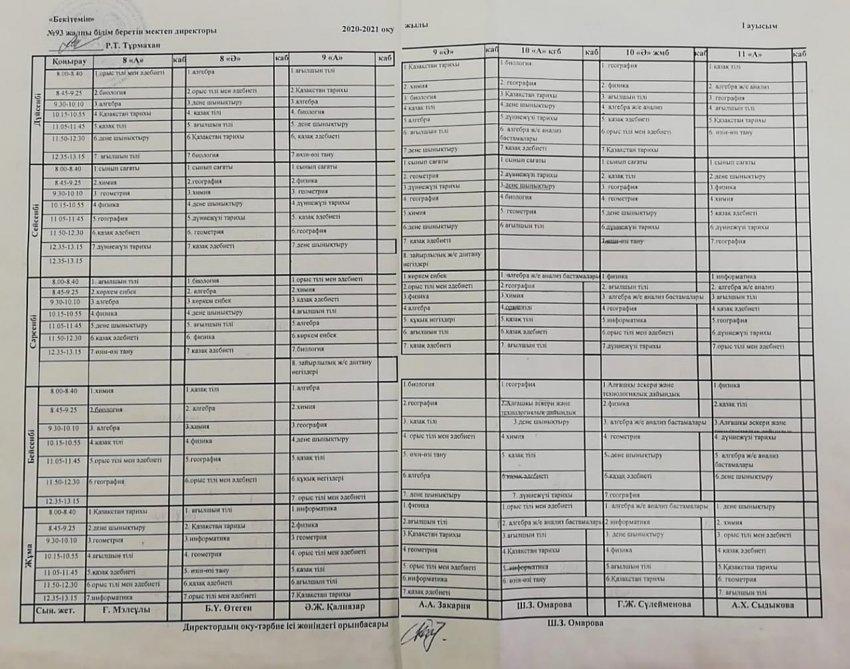 «Бекітемін»
№93 жалпы білім беретін мектеп директоры 2020-2021 оқу жылы І ауысым
Р.Т. Тұрмахан
Қоңырау 8 «А» каб 8 «Ә» каб 9 «А» каб 9 «Ә» каб 10 «А» қгб каб 10 «Ә» жмб каб 11 «А» каб
Дүйсенбі
8.00-8.40 1.орыс тілі мен әдебиеті 1.алгебра 1.ағылшын тілі 1 Қазақстан тарихы 1.биология 1. география 1 қазақ тілі
8.45-9.25 2.биология 2.орыс тілі мен әдебиеті 2.Қазақстан тарихы 2. химия 2. география 2. физика 2. алгебра ж/е анализ
9.30-10.10 3 алгебра 3.дене шынықтыру 3.алгебра 3. биология 3.Қазақстан тарихы 3. ағылшын тілі 3. география
10.15-10.55 4 Қазақстан тарихы 4. қазақ тілі 4. биология 4 қазақ тілі 4. дене шынықтыру 4. алгебра ж/е анализ 4. ағылшын тілі
11.05-11.45 5.қазақ тілі 5. ағылшын тілі 5. дене шынықтыру 5.алгебра 5.дүниежүзі тарихы 5.қазақ тілі 5.Қазақстан тарихы
11.50-12.30 6.дене шынықтыру 6.Қазақстан тарихы 6. қазақ әдебиеті 6. ағылшын тілі 6. алгебра ж/е анализ бастамалары 6.орыс тілі мен әдебиеті 6. өзін-өзі тану
12.35-13.15 7. ағылшын тілі 7 биология 7.өзін-өзі тану 7.дене шынықтыру 7. қазақ әдебиеті 7.Қазақстан тарихы
Сейсенбі
8.00-8.40 1.сынып сағаты 1.сынып сағаты 1. сынып сағаты 1 сынып сағаты 1.сынып сағаты 1. сынып сағаты 1. сынып сағаты
8.45-9.25 2.химия 2.география 2.физика 2. геометрия 2.дүниежүзі тарихы 2. қазақ тілі 2. қазақ әдебиеті
9.30-10.10 3. геометрия 3.химия 3. геометрия 3 дүниежүзі тарихы 3.дене шынықтыру 3. география 3. дене шынықтыру
10.15-10.55 4 физика 4.дене шынықтыру 4 дүниежүзі тарихы 4. география 4 биология 4. қазақ әдебиеті 4.химия
11.05-11.45 5.география 5.дүниежүзі тарихы 5. қазақ әдебиеті 5 химия 5. геометрия 5 дене шынықтыру 5.геометрия
11.50-12.30 6.қазақ әдебиеті 6. геометрия 6.география 6.дене шынықтыру 6 ағылшын тілі 6.дүниежүзі тарихы 6.физика
12.35-13.15 7.дүниежүзі тарихы 7 қазақ әдебиеті 7.дене шынықтыру 7. қазақ әдебиеті 7.өзін-өзі тану 7.география
12.35-13.15 8. зайырлылық ж/е дінтану негіздері
Сәрсенбі
8.00-8.40 1. ағылшын тілі 1.биология 1 орыс тілі мен әдебиеті 1 көркем еңбек 1. алгебра ж/е анализ бастамалары 1 физика 1 информатика
8.45-9.25 2.көркем еңбек 2. алгебра 2.химия 2.орыс тілі мен әдебиеті 2 география 2. ағылшын тілі 2. алгебра ж/е анализ
9.30-10.10 3 алгебра 3 көркем еңбек 3 қазақ әдебиеті 3.физика 3.химия 3. алгебра ж/е анализ бастамалары 3 ағылшын тілі
10.15-10.55 4.физика 4.дене шынықтыру 4.ағылшын тілі 4.алгебра 4 география 4 қазақ әдебиеті
11.05-11.45 5.дене шынықтыру 5. ағылшын тілі 5.алгебра 5. құқық негіздері 5.қазақ тілі 5.информатика 5.география
11.50-12.30 6.қазақ әдебиеті 6. физика 6.көркем еңбек 6. ағылшын тілі 6.қазақ әдебиеті 6.орыс тілі мен әдебиеті 6.дүниежүзі тарихы
12.35-13.15 7.өзін-өзі тану 7 қазақ әдебиеті 7.биология 7. қазақ әдебиеті 7 ағылшын тілі 7.дүниежүзі тарихы 7.орыс тілі мен әдебиеті
8. зайырлылық ж/е дінтану негіздері
Бейсенбі
8.00-8.40 1.химия 1 қазақ тілі 1.алгебра 1.биология 1.география 1.Алғашқы әскери және технологиялық дайындық 1.физика
8.45-9.25 2.биология 2. алгебра 2.химия 2.география 2.Алғашқы әскери және технологиялық дайындық 2 физика 2.қазақ тілі
9.30-10.10 3. алгебра 3.химия 3.география 3. қазақ тілі 3.дене шынықтыру 3. алгебра ж/е анализ бастамалары 3.Алғашқы әскери және
10.15-10.55 4 қазақ тілі 4 физика 4.дене шынықтыру 4. орыс тілі мен әдебиеті 4 химия 4 геометрия 4. дүниежүзі тарихы
11.05-11.45 5.орыс тілі мен әдебиеті 5.география 5.қазақ тілі 5. өзін-өзі тану 5. қазақ тілі 5.дене шынықтыру 5. алгебра ж/е анализ бастамалары
11.50-12.30 6.география 6. орыс тілі мен әдебиеті 6.құқық негіздері 6.алгебра 6 қазақ әдебиеті 6.қазақ әдебиеті 6.дене шынықтыру
12.35-13.15 7. орыс тілі мен әдебиеті 7. дене шынықтыру 7. дүниежүзі тарихы 7.география
Жұма
8.00-8.40 1. Қазақстан тарихы 1. ағылшын тілі 1.информатика 1. физика 1.орыс тілі мен әдебиеті 1.алгебра ж/е анализ бастамалары 1. дене шынықтыру
8.45-9.25 2.дене шынықтыру 2. Қазақстан тарихы 2.физика 2.ағылшын тілі 2. алгебра ж/е анализ бастамалары 2 информатика 2. химия
9.30-10.10 3.геометрия 3.информатика 3. геометрия 3.Қазақстан тарихы 3 ағылшын тілі 3. дене шынықтыру 3. орыс тілі мен әдебиеті
10.15-10.55 4.ағылшын тілі 4. геометрия 4. орыс тілі мен әдебиеті 4 геометрия 4.Қазақстан тарихы 4.физика 4. қазақ әдебиеті
11.05-11.45 5.қазақ әдебиеті 5. өзін-өзі тану 5. қазақ тілі 5. орыс тілі мен әдебиеті 5.информатика 5. ағылшын тілі 5.Қазақстан тарихы
11.50-12.30 6.орыс тілі мен әдебиеті 6.қазақ әдебиеті 6.ағылшын тілі 6.информатика 6. өзін-өзі тану 6.Қазақстан тарихы 6. геометрия
12.35-13.15 7.информатика 7.орыс тілі мен әдебиеті 7.Қазақстан тарихы 7.қазақ әдебиеті 7. ағылшын тілі
Сын. жет. Ғ. Мэлсұлы Б.Ү. Өтеген Ә.Ж. Қалназар А.А. Закария Ш.З. Омарова Г.Ж. Сүлейменова А.Х. Сыдыкова
Директордың оқу-тәрбие ісі жөніндегі орынбасары Ш.З. Омарова